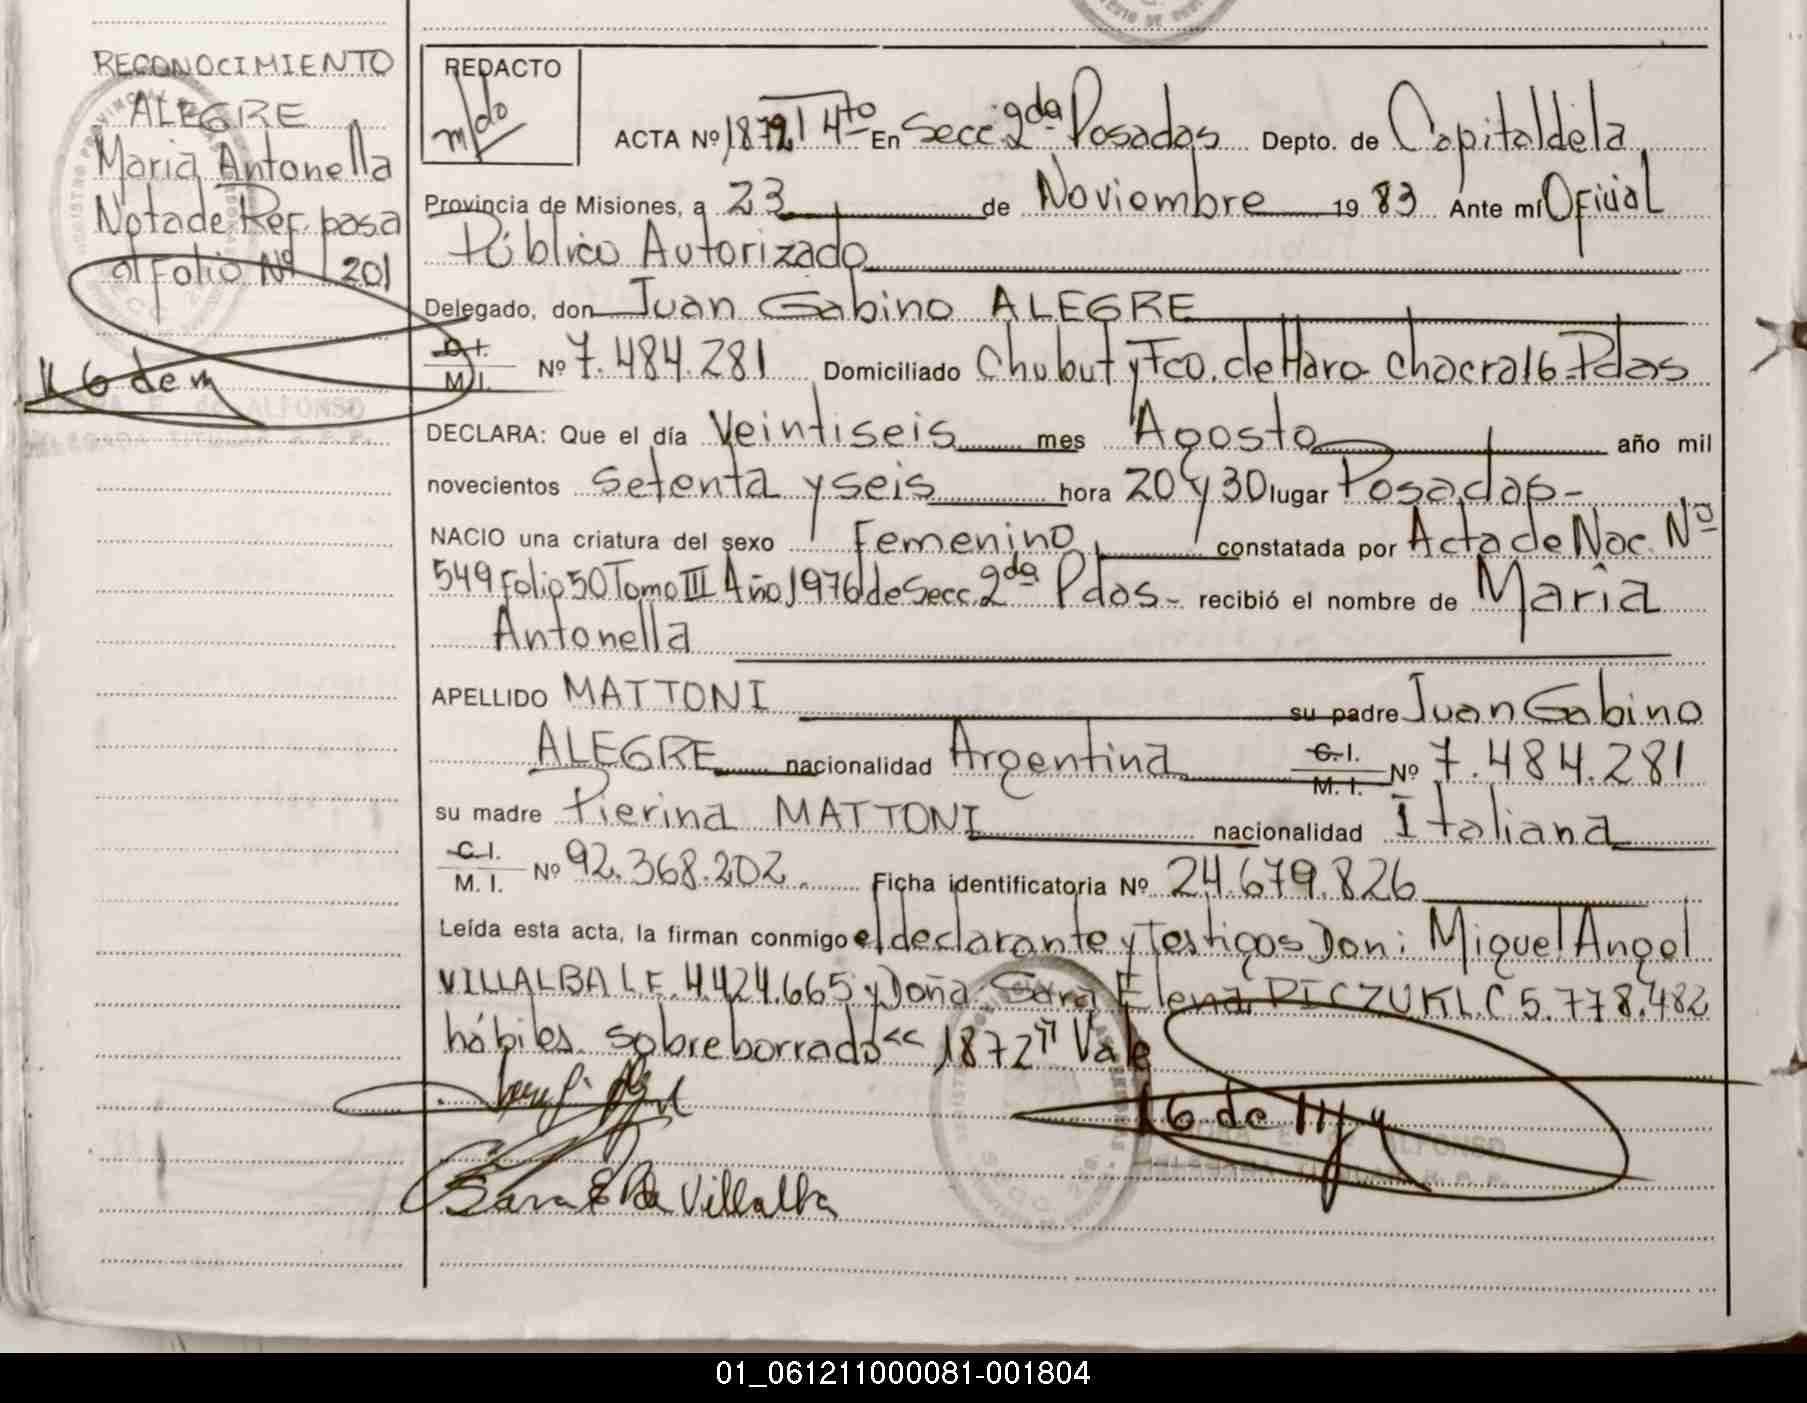 RECONOCIMIENTO
ALEGRE
Maria Antonella
Nota de Ref. pasa
al Folio Nº 201
REDACTO
ACTA Nº 1872 T 4to En Secc. 2da Posadas Depto. de Capital de la
Provincia de Misiones, a 23 de Noviembre 19 83 Ante mí Oficial
Público Autorizado
Delegado, don Juan Gabino ALEGRE
C.I. M.I. Nº 7.484.281 Domiciliado Chubut y Fco. de Haro Chacra 16 - Pdas
DECLARA: Que el día Veintiseis mes Agosto año mil
novecientos setenta y seis hora 20 y 30 lugar Posadas -
NACIO una criatura del sexo Femenino constatada por Acta de Nac. Nº
549 Folio 50 Tomo III Año 1976 de Secc. 2da Pdas - recibió el nombre de María
Antonella
APELLIDO MATTONI su padre Juan Gabino
ALEGRE nacionalidad Argentina C.I. M.I. Nº 7.484.281
su madre Pierina MATTONI nacionalidad Italiana
C.I. M.I. Nº 92.368.202 Ficha identificatoria Nº 24.679.826
Leída esta acta, la firman conmigo el declarante y Testigos Don: Miguel Angel
VILLALBA L.E. 4.424.665 y Doña Sara Elena PICZUK L.C 5.778.482
hábiles. sobreborrado "1872" Vale
Sara E P de Villalba
01_061211000081-001804